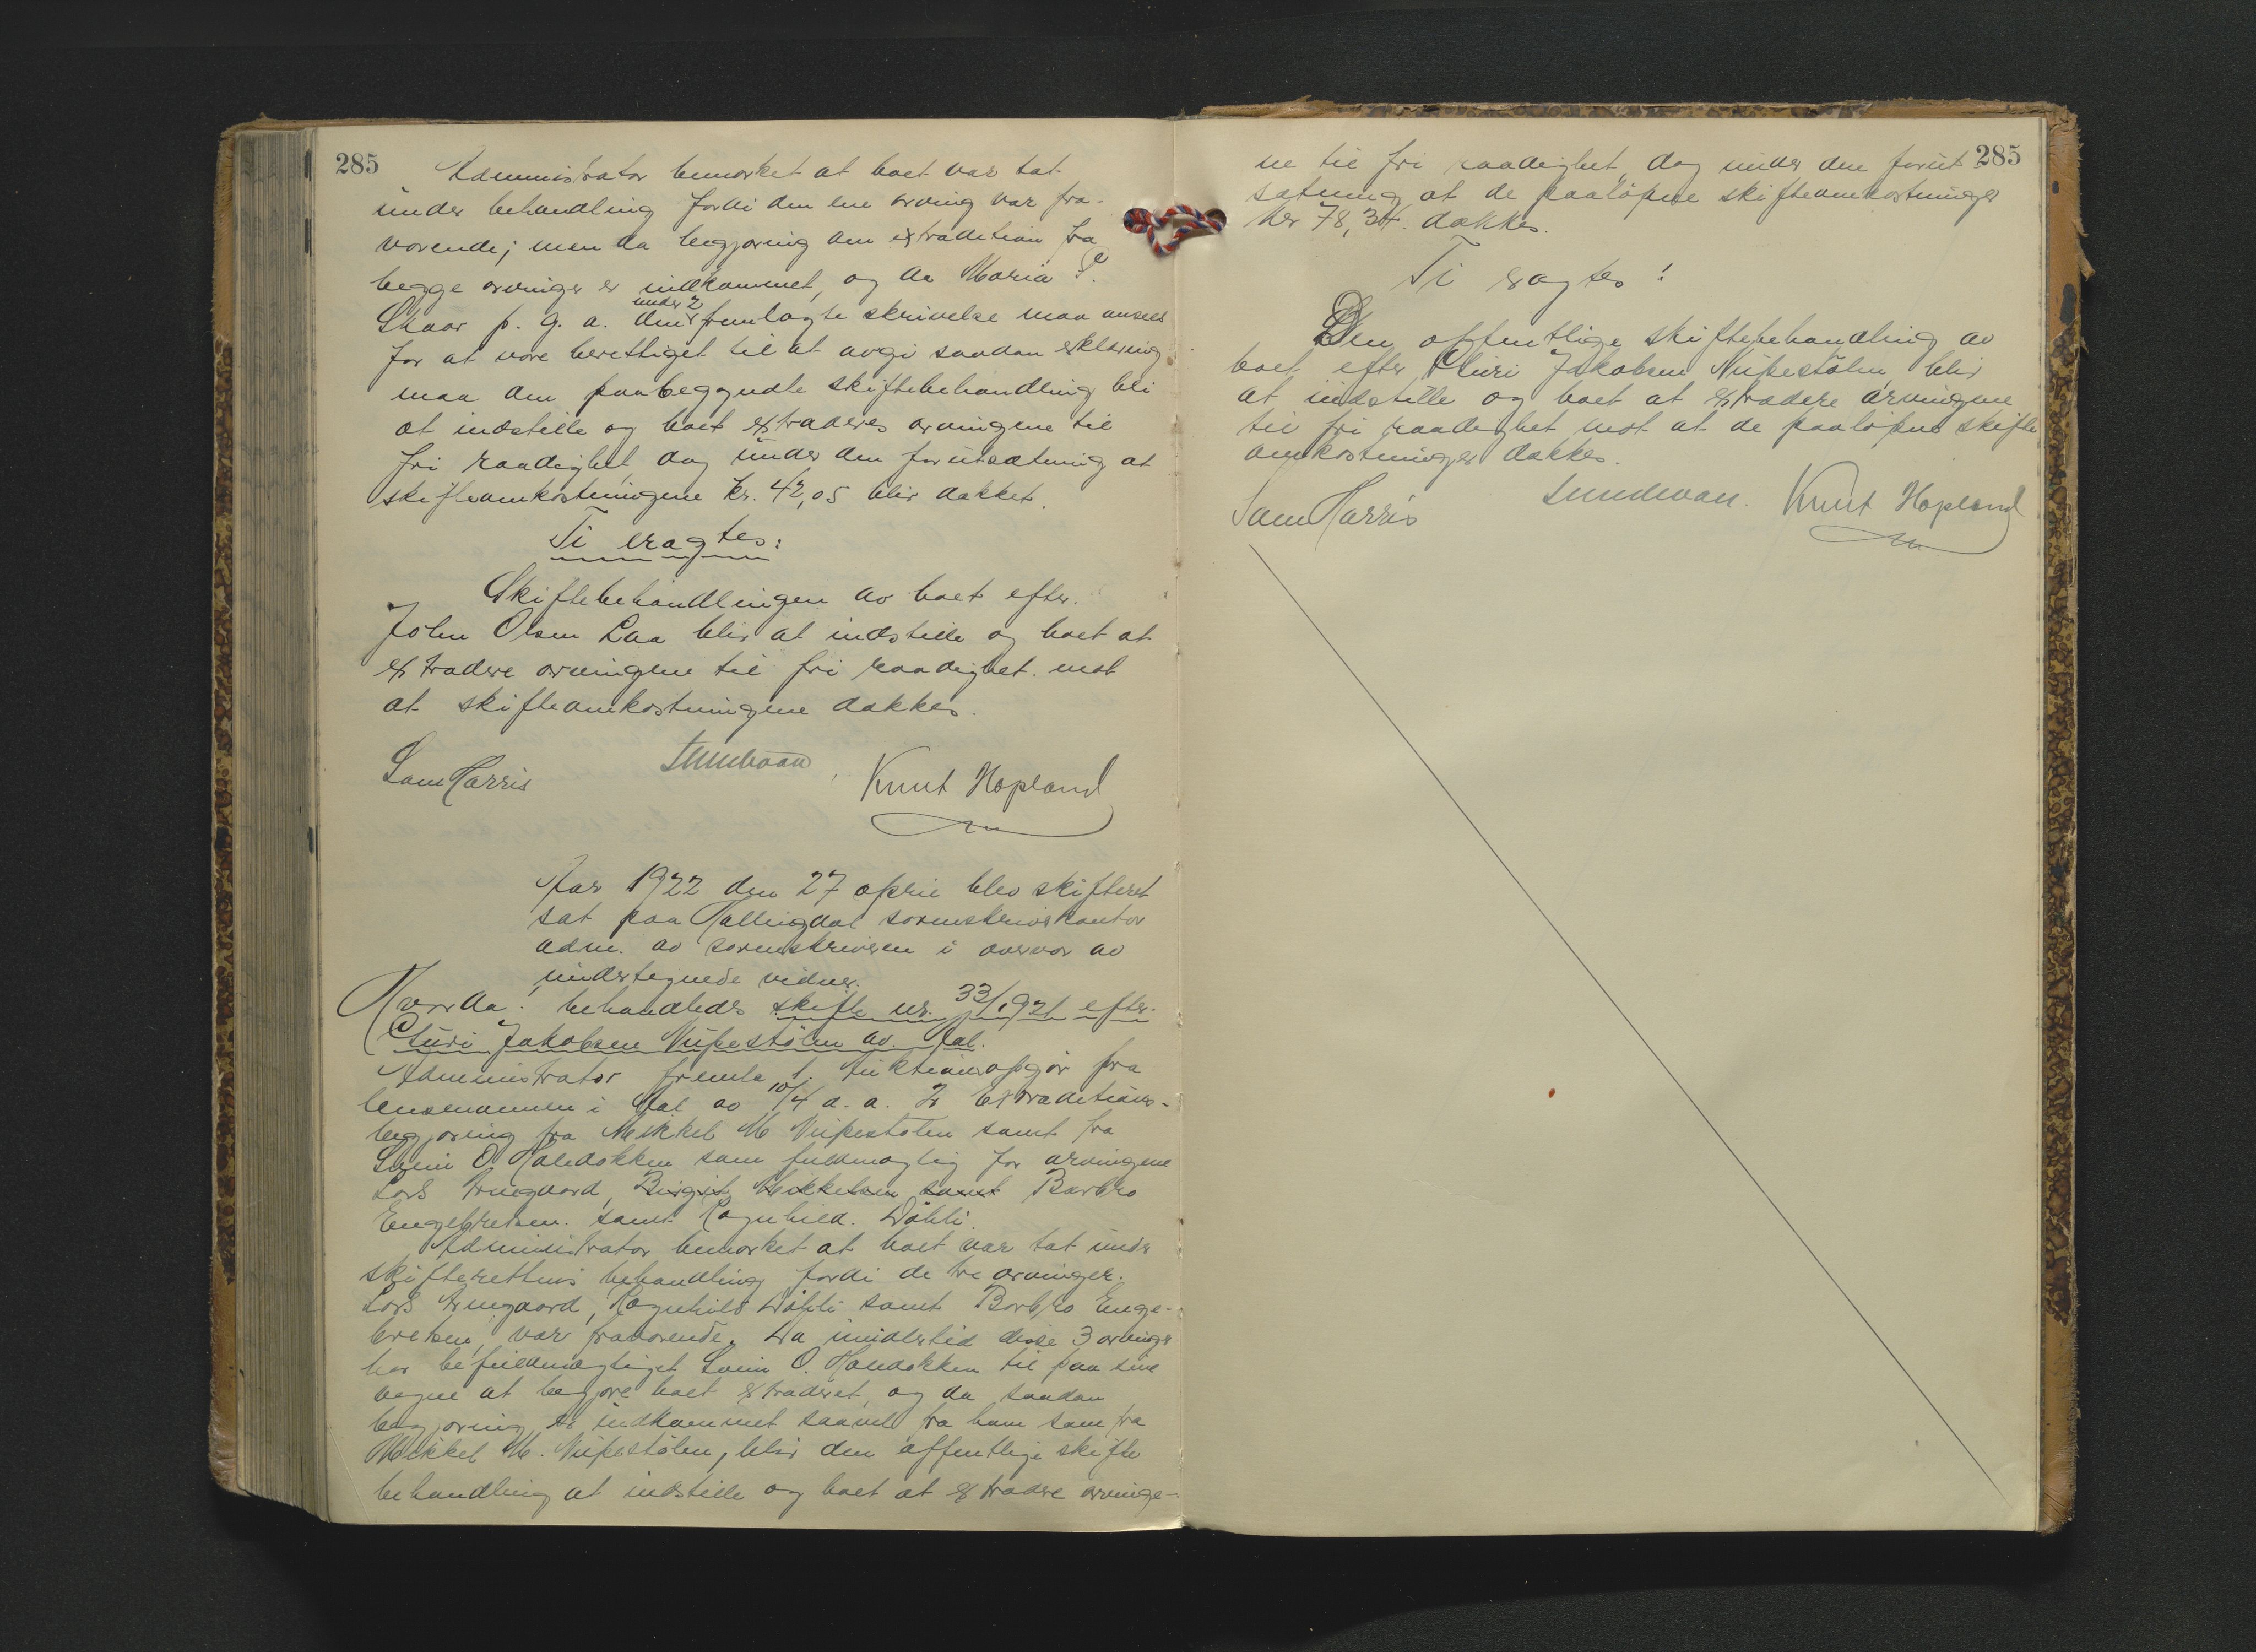 285
Administrator bemerket at boet var tat
under behandling fordi den ene arving var fra-
værende; men da begjæring om extradition fra
begge arvinger er indkommet, og da Maria P.
Skaar p. g. a. den under 2 fremlagte skrivelse maa ansees
for at være berettiget til at avgi saadan erklæring
maa den paabegyndte skiftebehandling bli
at indstille og boet extraderes arvingene til
fri raadighet dog under den forutsætning at
skifteomkostningene kr. 42,05 blir dækket.
Ti eragtes:
Skiftebehandlingen av boet efter
John Olsen Laa blir at indstille og boet at
extradere arvingene til fri raadighet mot
at skifteomkostningene dækkes.
Sam Harris
Knut Hopland
Aar 1922 den 27 april blev skifteret
sat paa Hallingdal sorenskriverkontor
adm. av sorenskriveren i overvær av
undertegnede vidner.
Hvorda: behandledes skifte nr. 33/1921 efter
Guri Jakobsen Nupestølen av Aal.
Administrator fremla 1. Auktionsopgjør fra
lensmannen i Aal av 10/4 d. a. 2. Extraditions-
begjæring fra Mikkel M Nupestølen samt fra
Svein O. Halidokken som fuldmægtig for arvingene
Lars Trugaard, Birgit Mikkelsen samt Barbro
Engebretsen samt Ragnhild Døhli.
Administrator bemerket at boet var tat under
skifterettens behandling fordi de tre arvinger
Lars Trugaard, Ragnhild Døhli samt Barbro Enge-
bretsen, var fraværende. Da imidlertid disse 3 arvinger
har befuldmægtiget Svein O. Halidokken til paa sine
vegne at begjære boet extraderet, og da saadan
begjæring er indkommet saavel fra ham som fra
Mikkel M. Nupestølen, blir den offentlige skifte
behandling at indstille og boet at extradere arvinge-
285
ne til fri raadighet, dog under den forut
sætning at de paaløpne skifteomkostninger
kr 78,34. dækkes.
Ti eragtes:
Den offentlige skiftebehandling av
boet efter Guri Jakobsen Nupestølen blir
at indstille og boet at extradere arvingene
til fri raadighet mot at de paaløpne skifte
omkostninger dækkes.
Sam Harris
Knut Hopland